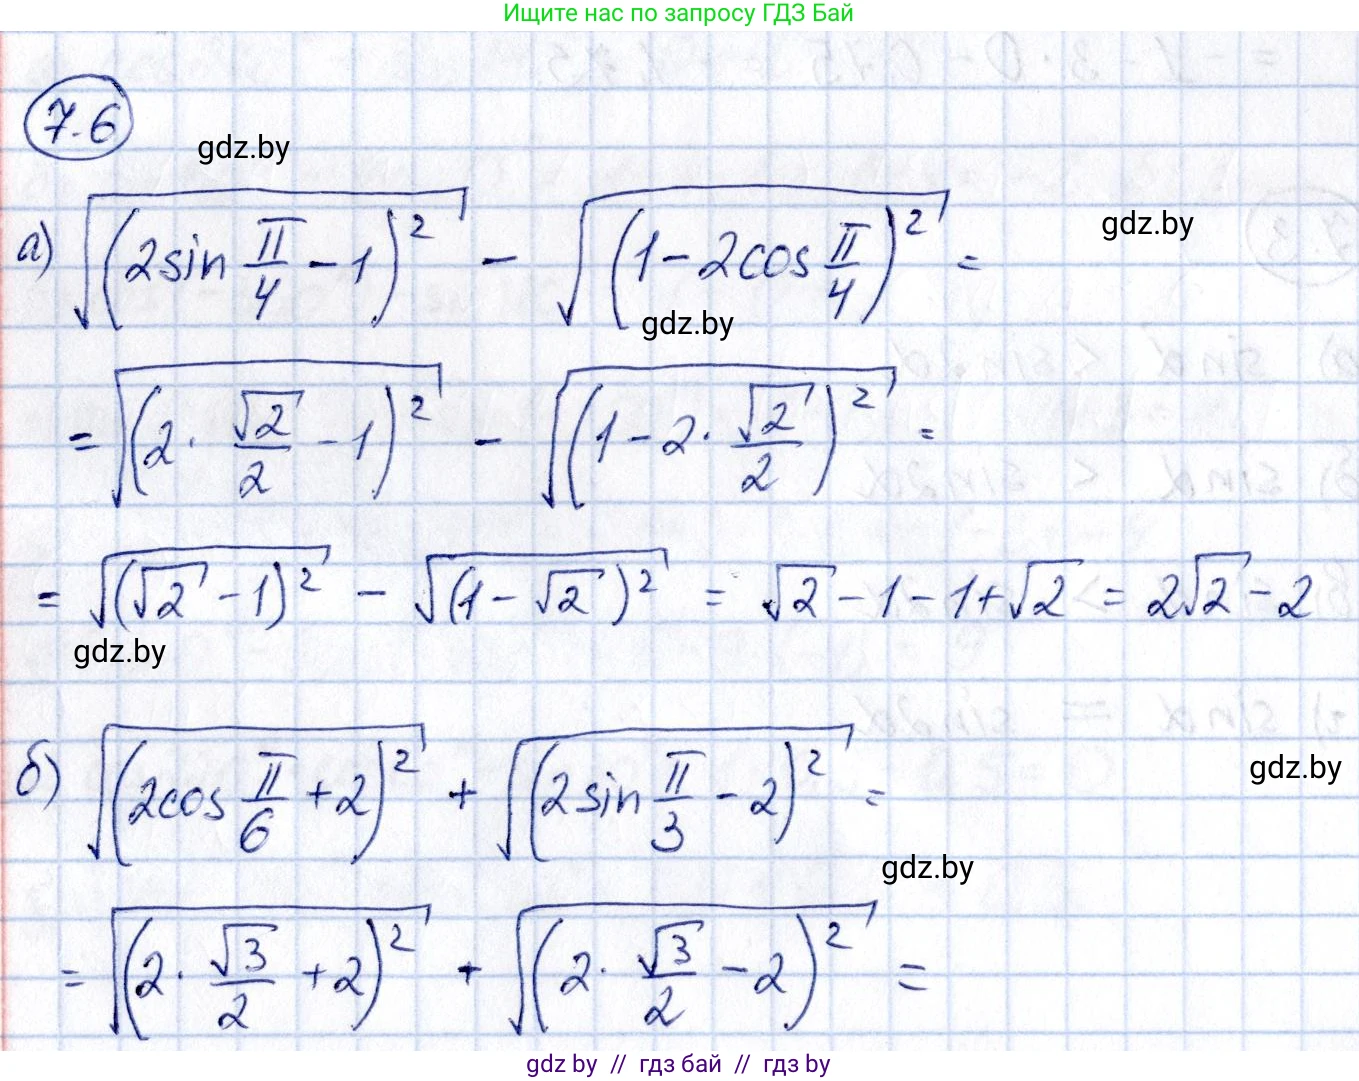 Ищите нас по запросу ГДЗ Бай
7.6
gdz.by
а) √((2sin π/4 - 1)²) - √((1 - 2cos π/4)²) =
gdz.by
gdz.by
= √((2 · √2/2 - 1)²) - √((1 - 2 · √2/2)²) =
= √((√2 - 1)²) - √((1 - √2)²) = √2 - 1 - 1 + √2 = 2√2 - 2
gdz.by
б) √((2cos π/6 + 2)²) + √((2sin π/3 - 2)²) =
gdz.by
gdz.by
= √((2 · √3/2 + 2)²) + √((2 · √3/2 - 2)²) =
gdz.by // гдз бай // гдз by